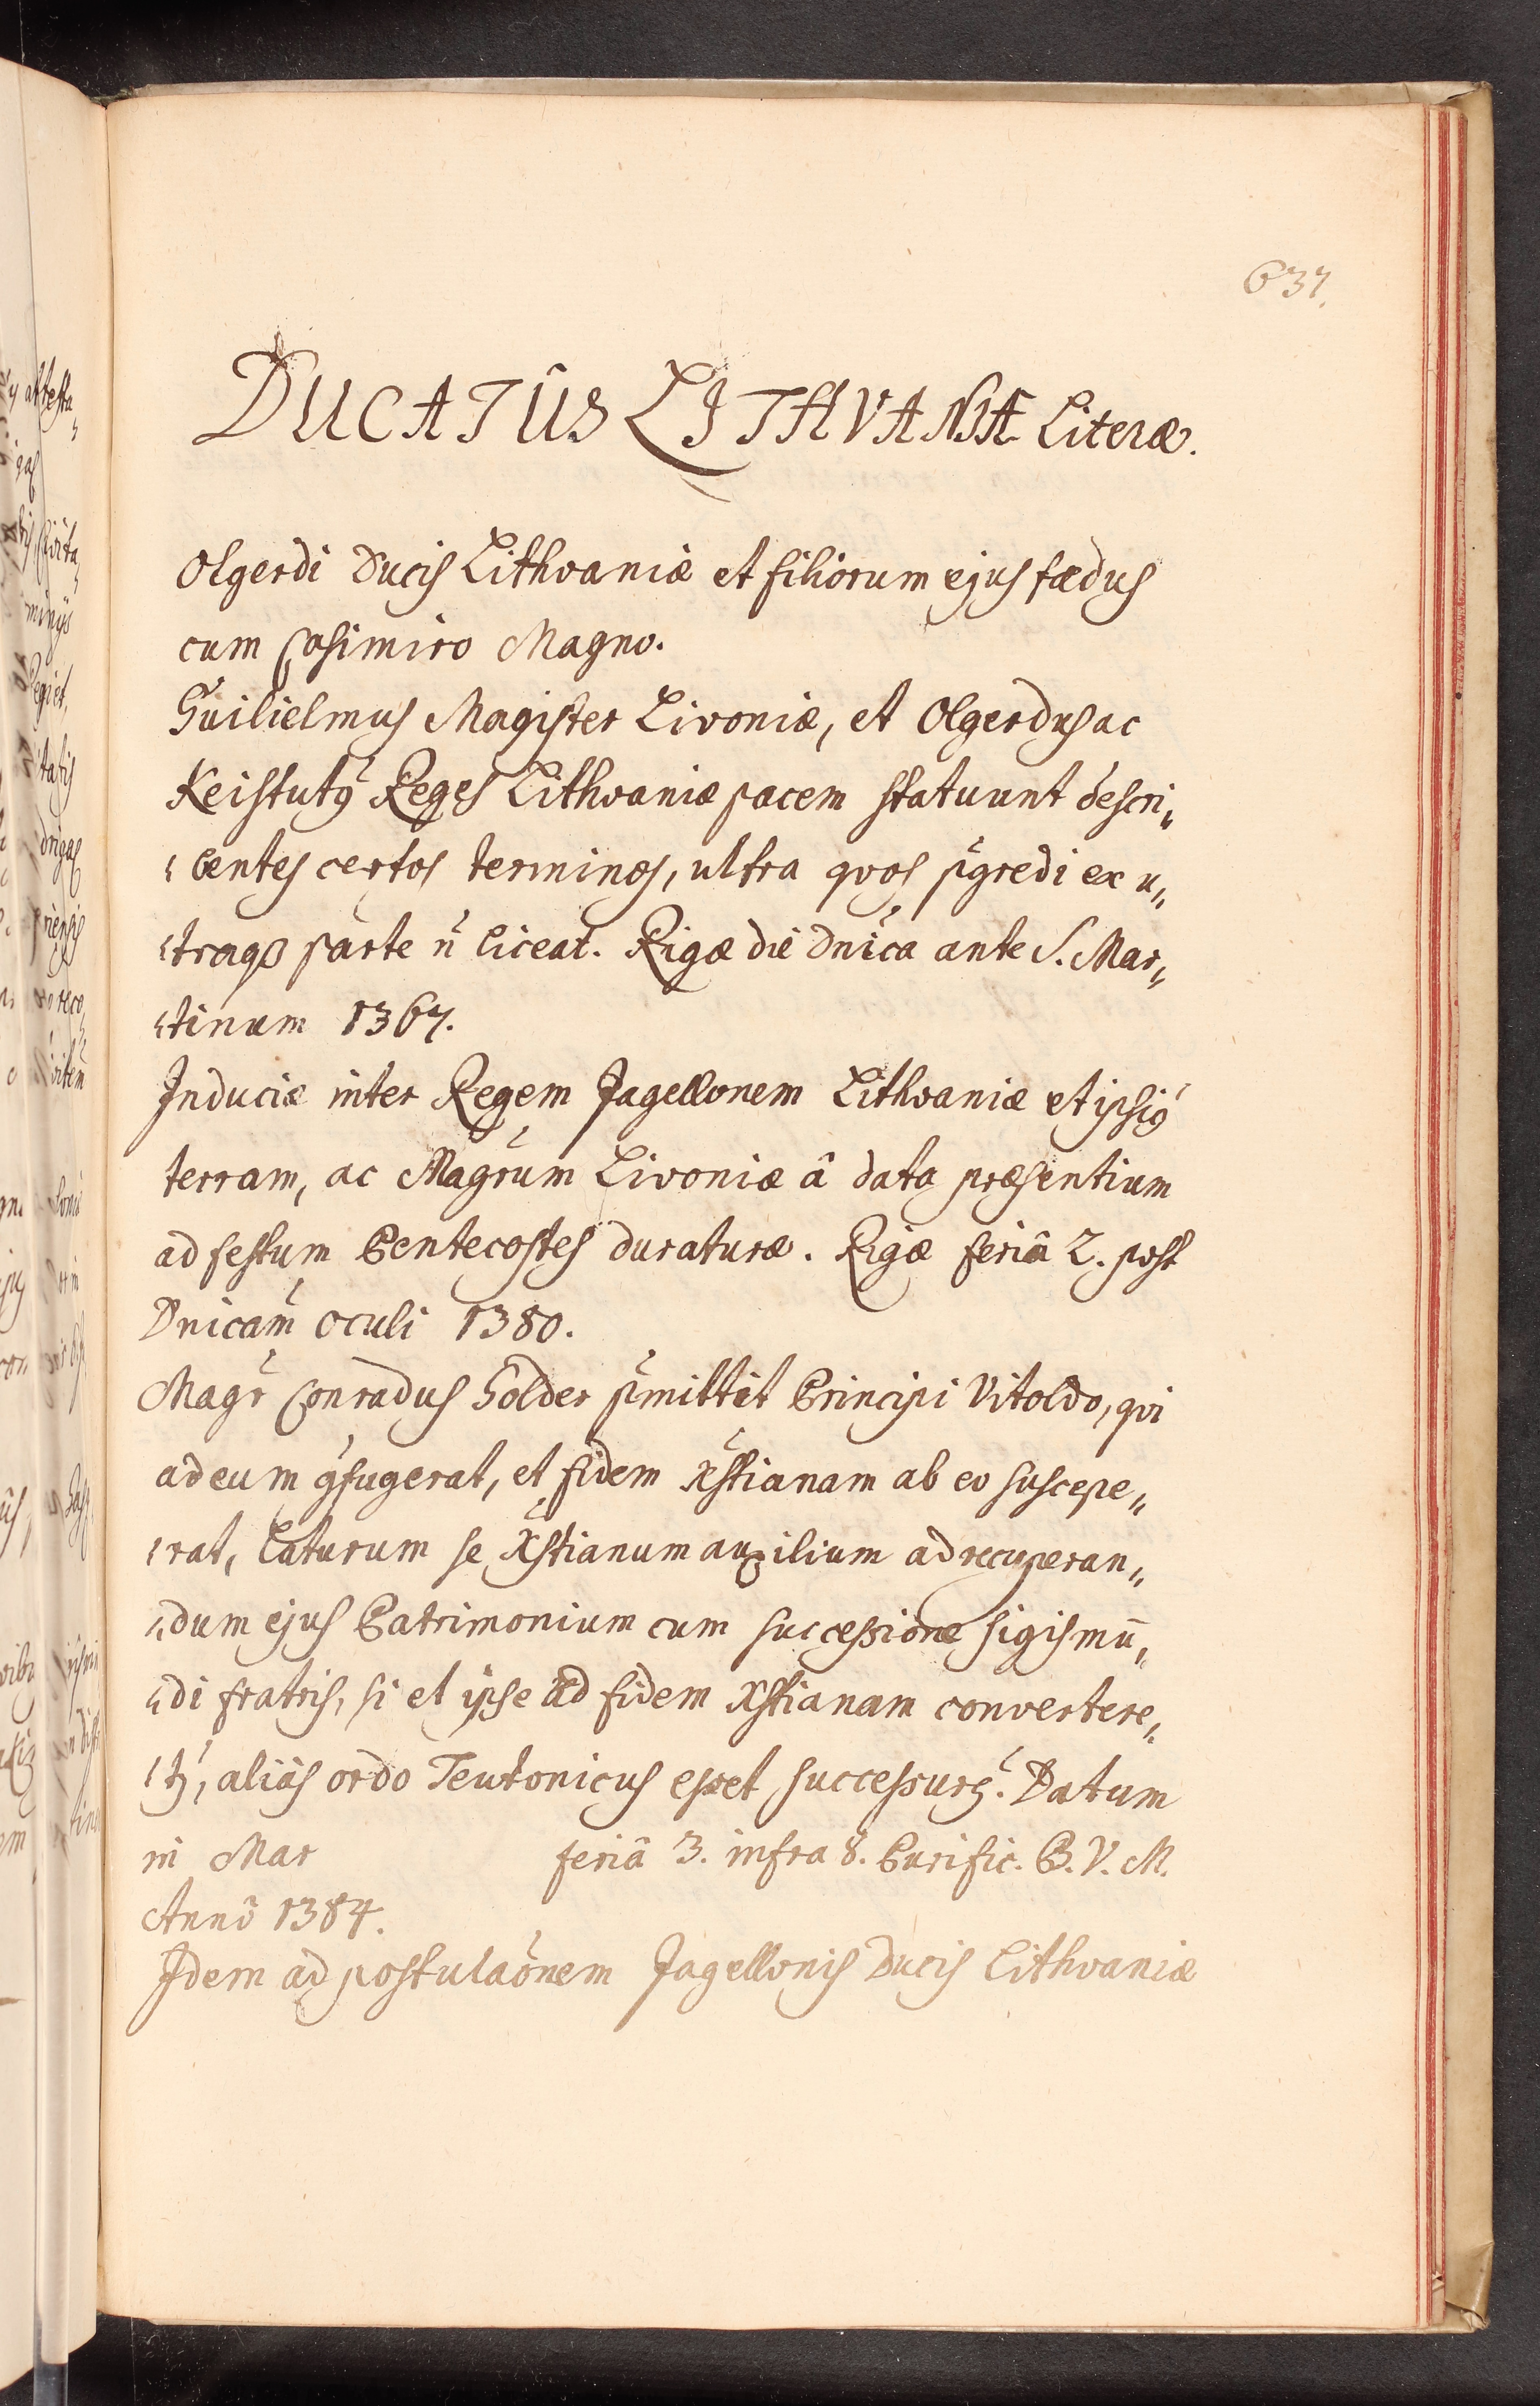 637.
DUCATUS LITHVANIÆ Literæ.
Olgerdi Ducis Lithvaniæ et filiorum ejus fædus
cum Casimiro Magno.
Guilielmus Magister Livoniæ, et Olgerdus ac
Keistutꝰ Reges Lithvaniæ pacem statuunt descri„
„bentes certos terminos, ultra qvos p̃gredi ex u„
„traqꝫ parte ñ liceat. Rigæ die Dnĩca ante S. Mar„
„tinum 1367.
Induciæ inter Regem Jagellonem Lithvaniæ et ipsiꝰ
terram, ac Magr̃um Livoniæ â data præsentium
ad festum Pentecostes duraturæ. Rigæ feriâ 2. post
Dnicam̃ Oculi 1380.
Magr̃ Conradus Zolder p̃mittit Principi Vitoldo, qvi
ad eum ꝯfugerat, et fidem Xstianam ab eo suscepe„
„rat, laturum se Xstianum auxilium ad recuperan„
„dum ejus Patrimonium cum successione Sigismũ„
„di fratris, si et ipse ad fidem Xstianam convertere„
„tꝰ, aliàs ordo Teutonicus esset successurꝰ. Datum
in Mar feriâ 3. infra 8. Purific. B. V. M.
Annô 1384.
Idem ad postulaõnem Jagellonis Ducis Lithvaniæ